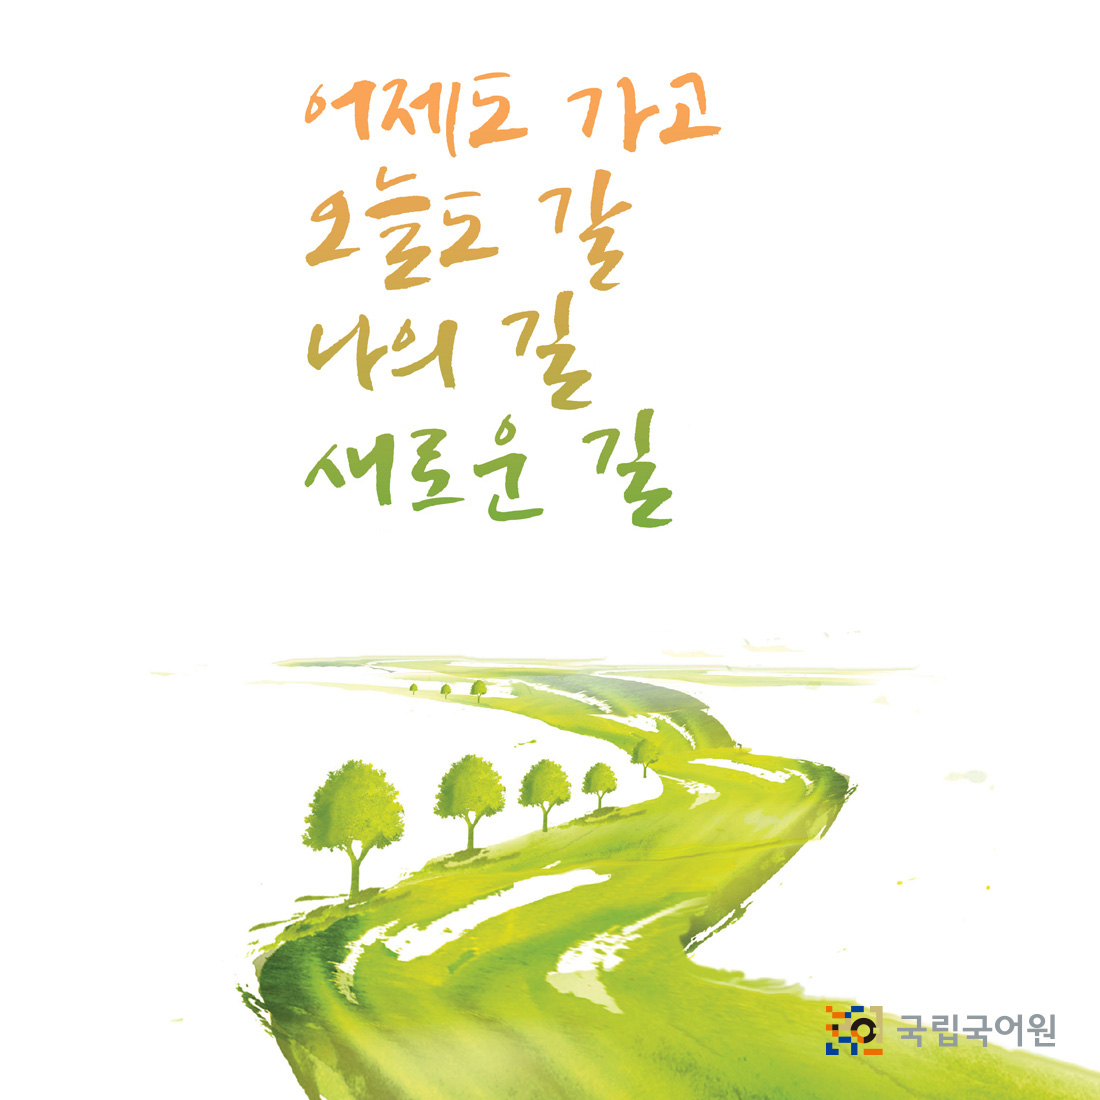 어제도 가고
오늘도 갈
나의 길
새로운 길
국립국어원